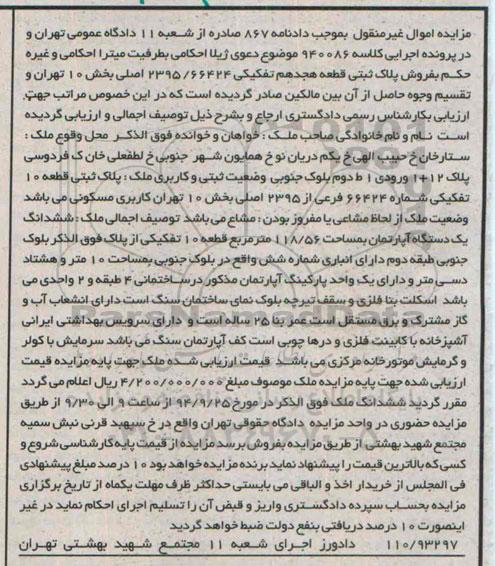 مزایده اموال غیر منقول بموجب دادنامه ۸۶۷ صادره از شعبه ۱۱ دادگاه عمومی تهران و
در پرونده اجرایی کلاسه ۹۴۰۰۸۶ موضوع دعوی ژیلا احکامی بطرفیت میترا احکامی و غیره
حکم بفروش پلاک ثبتی قطعه هجدهم تفکیکی ۲۳۹۵/۶۶۴۲۴ اصلی بخش ۱۰ تهران و
تقسیم وجوه حاصل از آن بین مالکین صادر گردیده است که در این خصوص مراتب جهت
ارزیابی بکارشناس رسمی دادگستری ارجاع و بشرح ذیل توصیف اجمالی و ارزیابی گردیده
است نام و نام خانوادگی صاحب ملک : خواهان و خوانده فوق الذکر محل وقوع ملک :
ستارخان خ حبیب الهی خ یکم دریان نو خ همایون شهر جنوبی خ لطفعلی خان ک فردوسی
پلاک ۱۲+۱ ورودی ۱ ط دوم بلوک جنوبی وضعیت ثبتی و کاربری ملک : پلاک ثبتی قطعه ۱۰
تفکیکی شماره ۶۶۴۲۴ فرعی از ۲۳۹۵ اصلی بخش ۱۰ تهران کاربری مسکونی می باشد
وضعیت ملک از لحاظ مشاعی یا مفروز بودن : مشاع می باشد توصیف اجمالی ملک : ششدانگ
یک دستگاه آپارتمان بمساحت ۱۱۸/۵۶ متر مربع قطعه ۱۰ تفکیکی از پلاک فوق الذکر بلوک
جنوبی طبقه دوم دارای انباری شماره شش واقع در بلوک جنوبی بمساحت ۱۰ متر و هشتاد
دسی متر و دارای یک واحد پارکینگ آپارتمان مذکور در ساختمانی ۴ طبقه و ۲ واحدی می
باشد اسکلت بنا فلزی و سقف تیرچه بلوک نمای ساختمان سنگ است دارای انشعاب آب و
گاز مشترک و برق مستقل است عمر بنا ۲۵ ساله است و دارای سرویس بهداشتی ایرانی
آشپزخانه با کابینت فلزی و درها چوبی است کف آپارتمان سنگ می باشد سرمایش با کولر
و گرمایش موتورخانه مرکزی می باشد قیمت ارزیابی شده ملک جهت پایه مزایده قیمت
ارزیابی شده جهت پایه مزایده ملک موصوف مبلغ ۴/۲۰۰/۰۰۰/۰۰۰ ریال اعلام می گردد
مقرر گردید ششدانگ ملک فوق الذکر در مورخ ۹۴/۹/۲۵ از ساعت ۹ الی ۹/۳۰ از طریق
مزایده حضوری در واحد مزایده دادگاه حقوقی تهران واقع در خ سپهبد قرنی نبش سمیه
مجتمع شهید بهشتی از طریق مزایده بفروش برسد مزایده از قیمت پایه کارشناسی شروع و
کسی که بالاترین قیمت را پیشنهاد نماید برنده مزایده خواهد بود ۱۰ درصد مبلغ پیشنهادی
فی المجلس از خریدار اخذ و الباقی می بایستی حداکثر ظرف مهلت یکماه از تاریخ برگزاری
مزایده بحساب سپرده دادگستری واریز و قبض آن را تسلیم اجرای احکام نماید در غیر
اینصورت ۱۰ درصد دریافتی بنفع دولت ضبط خواهد گردید
۱۱۰/۹۳۲۹۷ دادورز اجرای شعبه ۱۱ مجتمع شهید بهشتی تهران